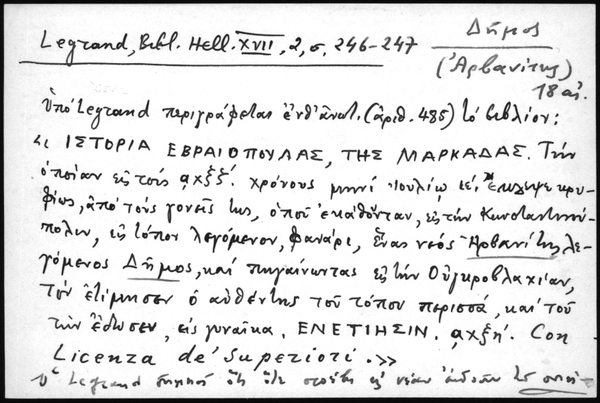 Legrand, Bibl. Hell. XVII, 2, σ. 246-247
Δῆμος
(Ἀρβανίτης)
18 αἰ.
Ὑπό Legrand περιγράφεται ἐνθ' ἀνωτ. (ἀριθ. 485) τό βιβλίον:
« ΙΣΤΟΡΙΑ ΕΒΡΑΙΟΠΟΥΛΑΣ, ΤΗΣ ΜΑΡΚΑΔΑΣ. Τήν
ὁποίαν εἰς τούς ͵αχξξ΄. χρόνους μηνί Ἰουλίῳ ιε΄. Ἔκλεψε κρυ-
φίως, ἀπό τούς γονεῖς της, ὁποῦ ἐκαθόνταν, εἰς τήν Κωνσταντινού-
πολιν, εἰς τόπον λεγόμενον, φανάρι, ἕνας νεός Ἀρβανίτης λε-
γόμενος Δῆμος, καί πηγαίνωντας εἰς τήν Οὐγκροβλαχίαν,
τόν ἐτίμησεν ὁ αὐθέντης τοῦ τόπου περισσά, καί τοῦ
τήν ἔδωσεν, εἰς γυναῖκα. ΕΝΕΤΙΗΣΙΝ. ͵αχξη΄. Con
Licenza de' Superiori. »
Ὁ Legrand ὅτι εἰς νέαν